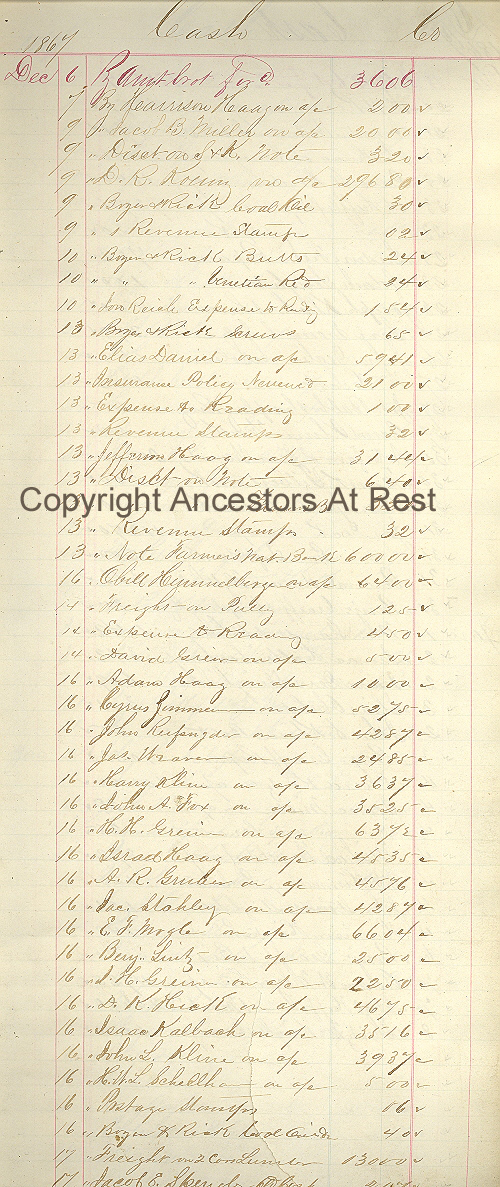 1867 Cash Cr
Dec 6 By Amt brot for'd. 3606
7 " Jefferson Haag on a/c 200
9 " Jacob B. Miller on a/c 2000
9 " Disct on Note 320
9 " D. R. on a/c 29680
9 " Boyer & Rick Coal Oil 30
9 " 1 Revenue Stamp 02
10 " Boyer & Rick Butts 24
10 " " " Venetian Red 24
10 " Reich Expense to Redg 154
13 " Boyer & Rick Screws 65
13 " Elias Daniel on a/c 5941
13 " Insurance Policy Renewed 2100
13 " Expense to Reading 100
13 " Revenue Stamps 32
13 " Jefferson Haag on a/c 3144
13 " Disct on Note 640
Copyright Ancestors At Rest
13 " Revenue Stamps 32
13 " Note Farmers Nat. Bank 60000
16 " on a/c 6400
14 " Freight on 125
14 " Expense to Reading 450
14 " David Greim on a/c 500
16 " Adam Haag on a/c 1000
16 " Cyrus Zimmerman on a/c 5275
16 " John on a/c 4287
16 " Jas. Weaver on a/c 2485
16 " Harry Kline on a/c 3637
16 " John A. Fox on a/c 3525
16 " H. H. Greim on a/c
16 " Israel Haag on a/c 4535
16 " A. R. Gruber on a/c 4576
16 " Jac. Stahley on a/c 4287
16 " E. F. Mogle on a/c 6604
16 " Benj. on a/c 2500
16 " J. H. Greim on a/c 2250
16 " D. K. Hick on a/c 4675
16 " Isaac Kalbach on a/c 3516
16 " John L. Kline on a/c 3937
16 " H. W. L. on a/c 500
16 " Postage Stamps 06
16 " Boyer & Rick 40
17 " Freight on 2 Cars Lumber 13000
17 " Jacob E.